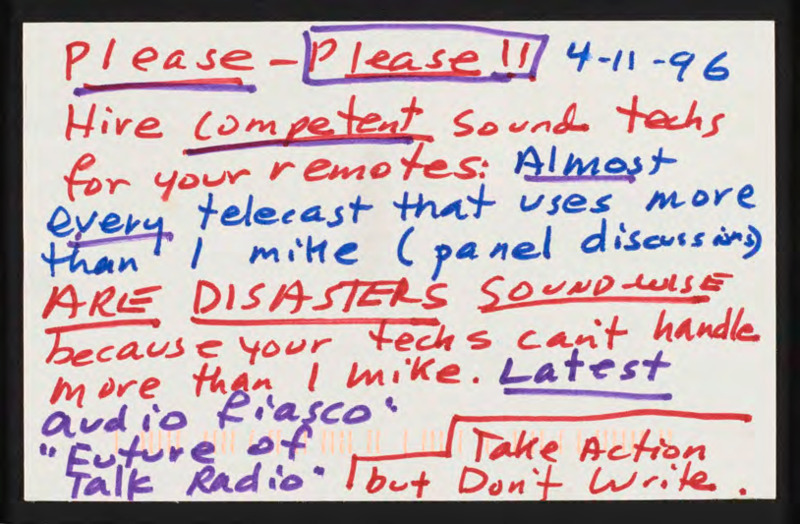 Please - Please !! 4-11-96
Hire competent sound techs
for your remotes: Almost
every telecast that uses more
than 1 mike (panel discussions)
ARE DISASTERS SOUND-WISE
because your techs can't handle
more than 1 mike. Latest
audio fiasco:
"Future of
Talk Radio"
Take Action
but Don't Write.